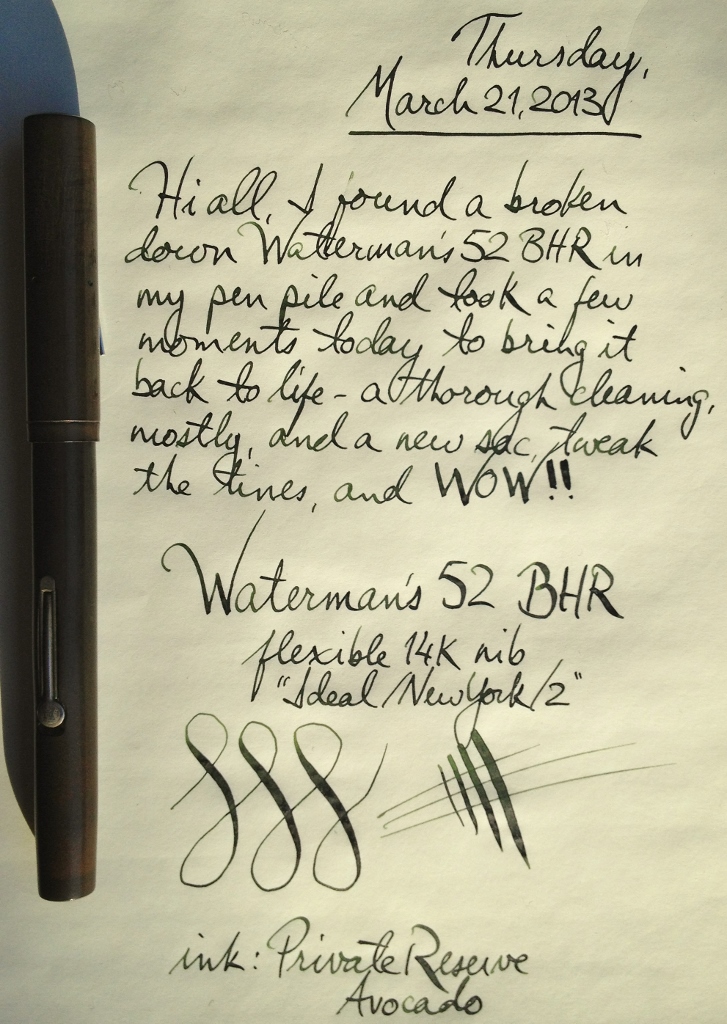 Thursday,
March 21, 2013
Hi all, I found a broken
down Waterman's 52 BHR in
my pen pile and took a few
moments today to bring it
back to life - a thorough cleaning,
mostly, and a new sac, tweak
the tines, and WOW!!
Waterman's 52 BHR
flexible 14K nib
"Ideal / New York / 2"
ink: Private Reserve
Avocado